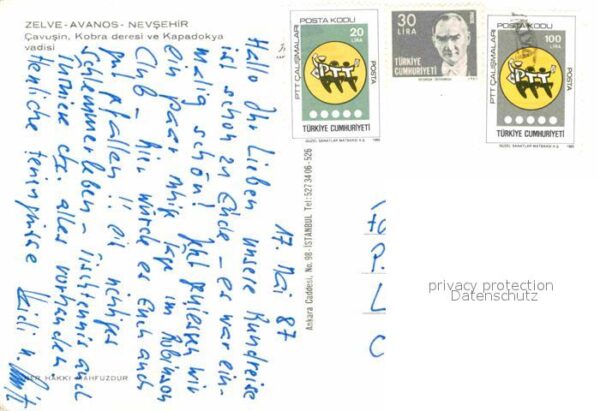 ZELVE-AVANOS-NEVŞEHİR
Çavuşin, Kobra deresi ve Kapadokya
vadisi
17. Mai 87
Hallo Ihr Lieben, unsere Rundreise
ist schon zu Ende – es war ein-
malig schön! Jetzt genießen wir
ein paar ruhige Tage im Robinson
Club – hier würde es Euch auch
gut gefallen!! Ein richtiges
Schlemmerleben – Tischtennis auch
etc. alles vorhanden
Herzliche Feriengrüsse Heidi u.
HAKKI MAHFUZDUR
Ankara Caddesi, No. 98-İSTANBUL Tel: 527 34 06-526
PTT ÇALIŞMALARI
POSTA KODU
20
LİRA
PTT
POSTA
TÜRKİYE CUMHURİYETİ
GÜZEL SANATLAR MATBAASI A.Ş. 1985
30
LİRA
TÜRKİYE
CUMHURİYETİ
PTT ÇALIŞMALARI
POSTA KODU
100
LİRA
PTT
POSTA
TÜRKİYE CUMHURİYETİ
GÜZEL SANATLAR MATBAASI A.Ş. 1985
Fa
P.
L
C
privacy protection
Datenschutz